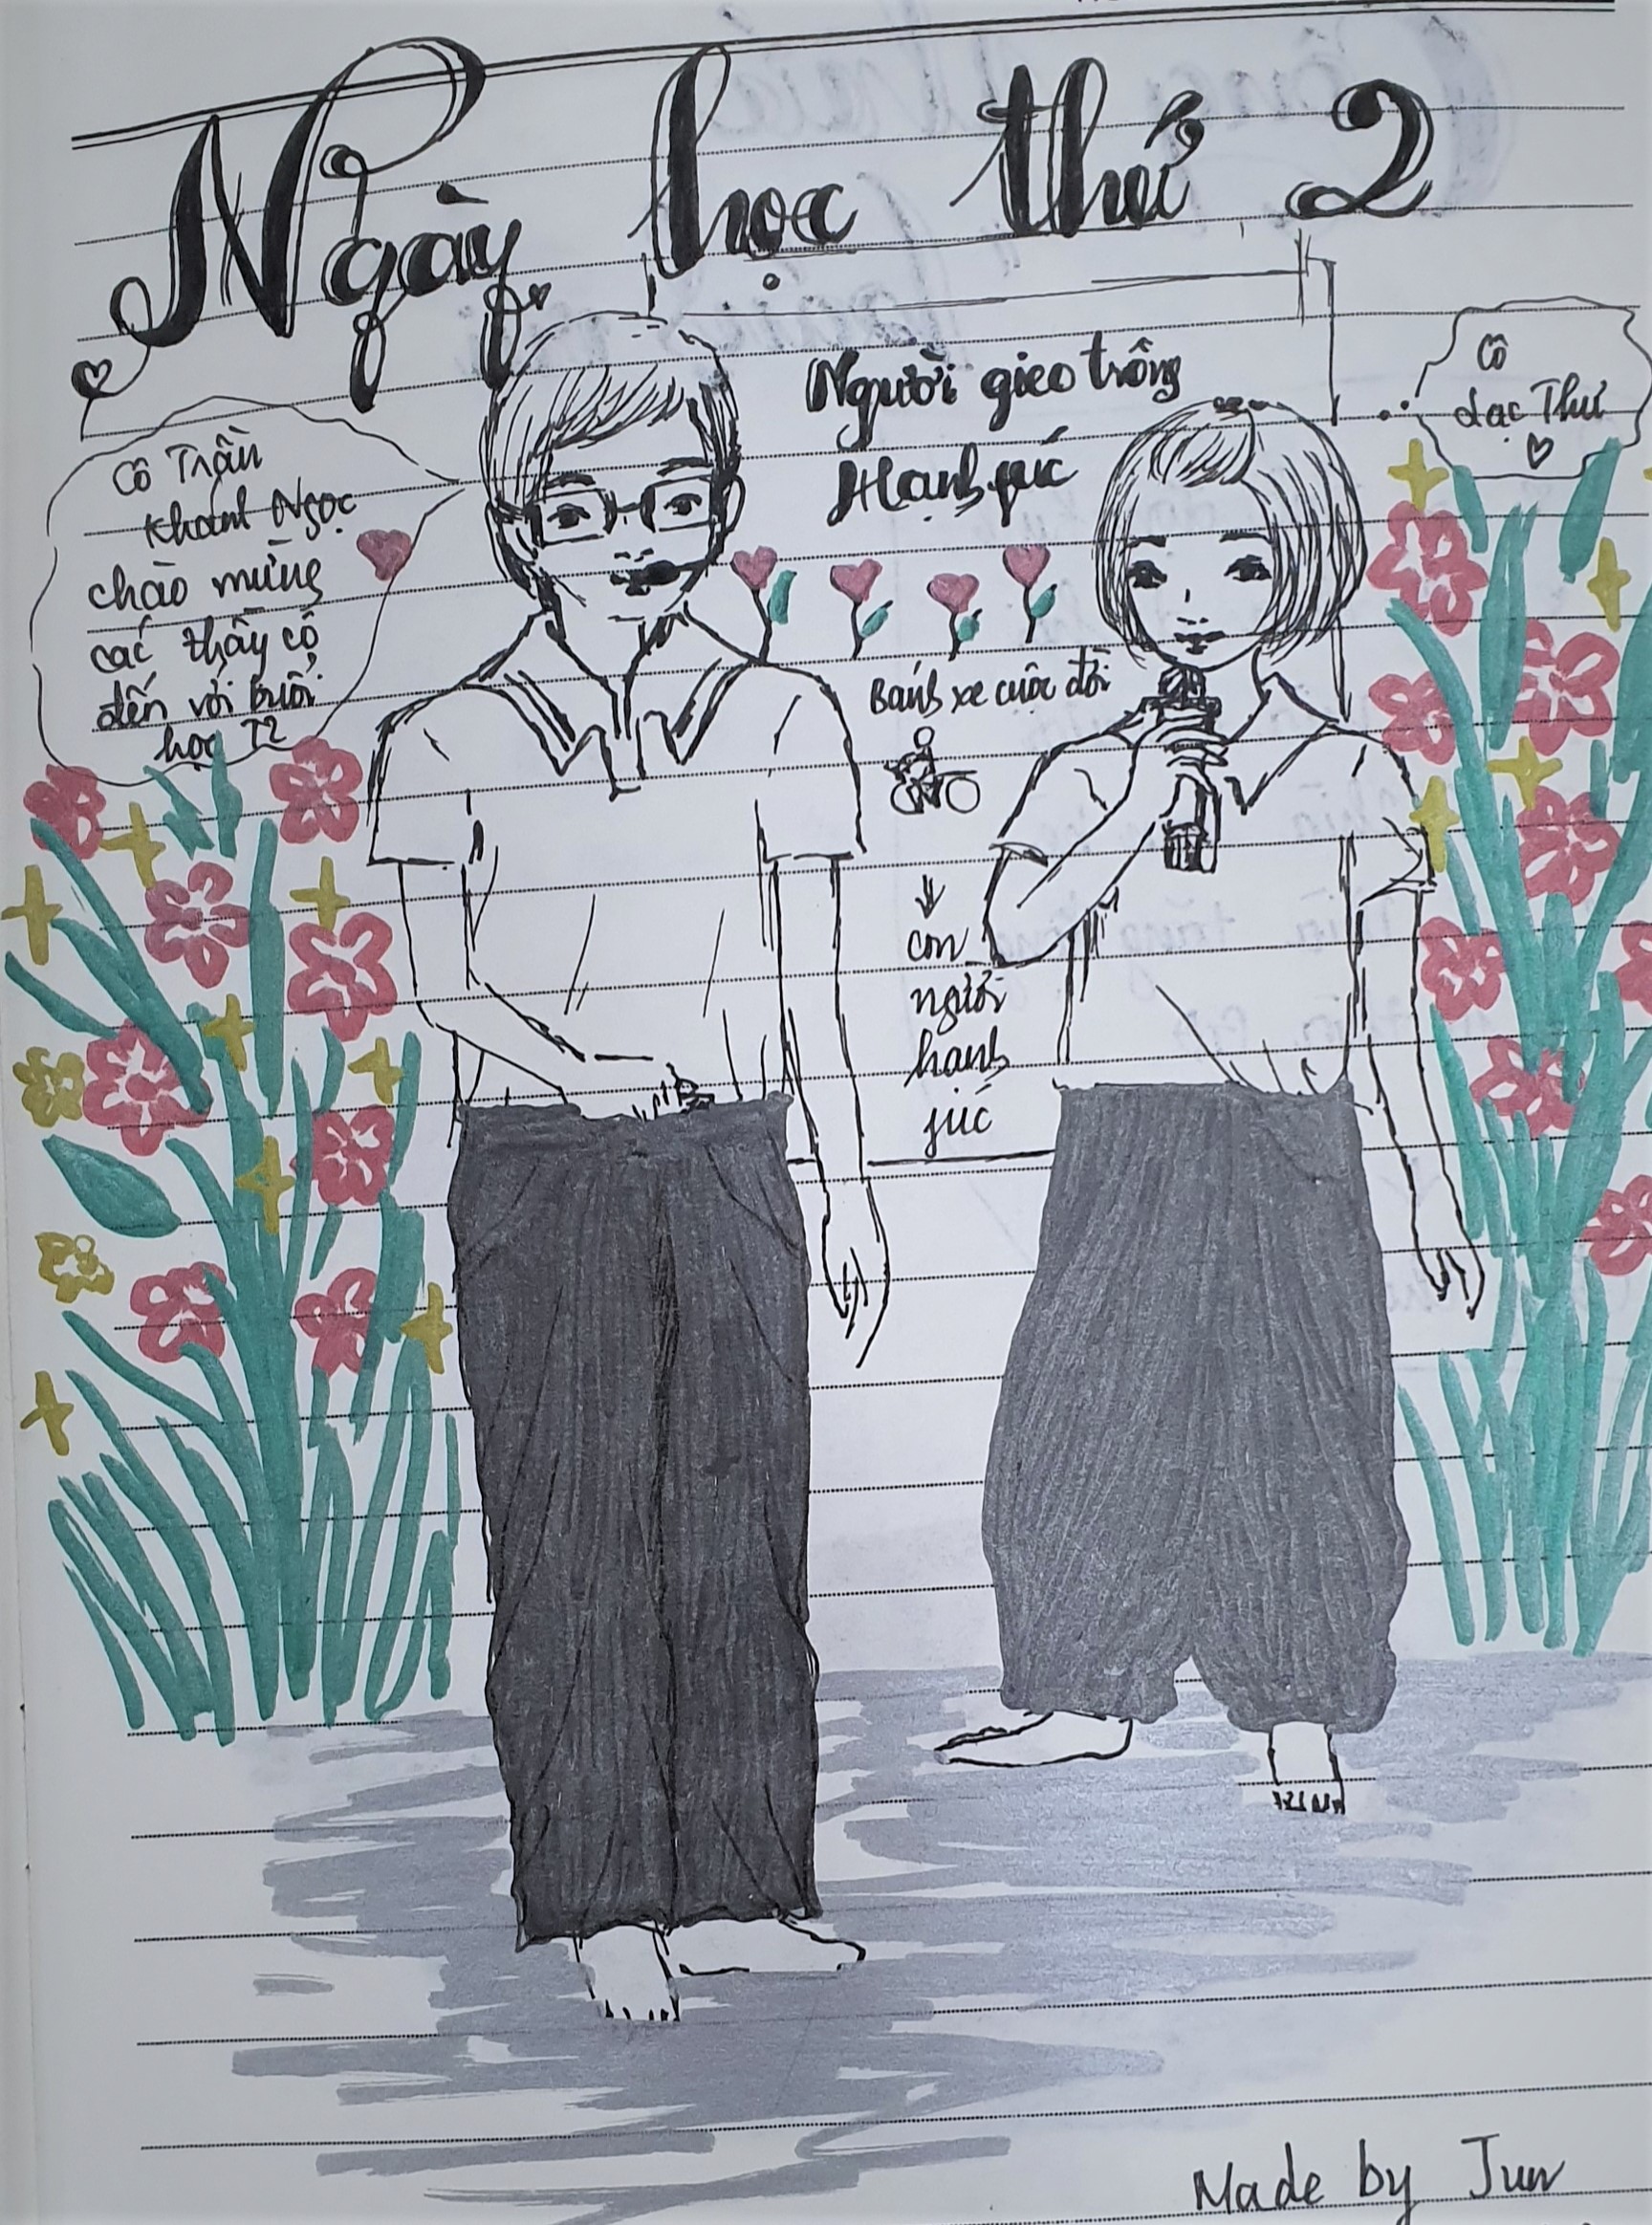 Ngày học thứ 2
Cô Trần
Khánh Ngọc
chào mừng
các thầy cô
đến với buổi
học T2
Người gieo trồng
Hạnh phúc
Cô
Lạc Thư
Bánh xe cuộc đời
con
người
hạnh
phúc
Made by Jun